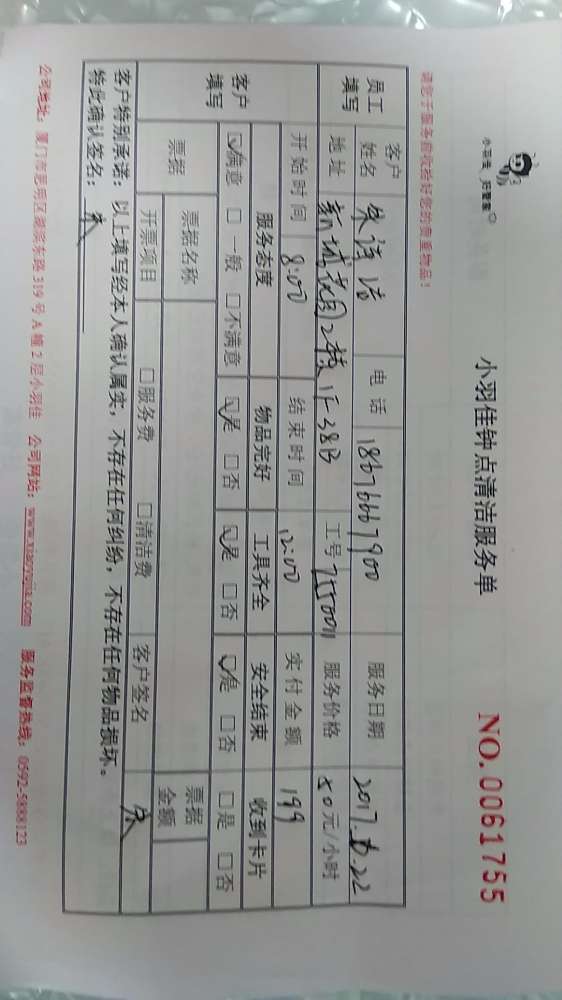 小羽佳 好管家
小羽佳钟点清洁服务单
NO. 0061755
请您于服务前收捡好您的贵重物品!
员工填写 客户姓名 电话 18676667900 服务日期 2017.
地址 新城花园2栋 38B 工号 服务价格 50元/小时
开始时间 8:00 结束时间 12:00 实付金额 199
客户填写 服务态度 物品完好 工具齐全 安全结束 收到卡片
☑满意 □一般 □不满意 ☑是 □否 ☑是 □否 ☑是 □否 □是 □否
票据 票据名称 票据金额
开票项目 □服务费 □清洁费 客户签名 朱
客户特别承诺:以上填写经本人确认属实,不存在任何纠纷,不存在任何物品损坏。
特此确认签名: 朱
公司地址:厦门市思明区湖滨东路319号A幢2层小羽佳 公司网站:www.xiaoyujia.com 服务监督热线:0592-5888123